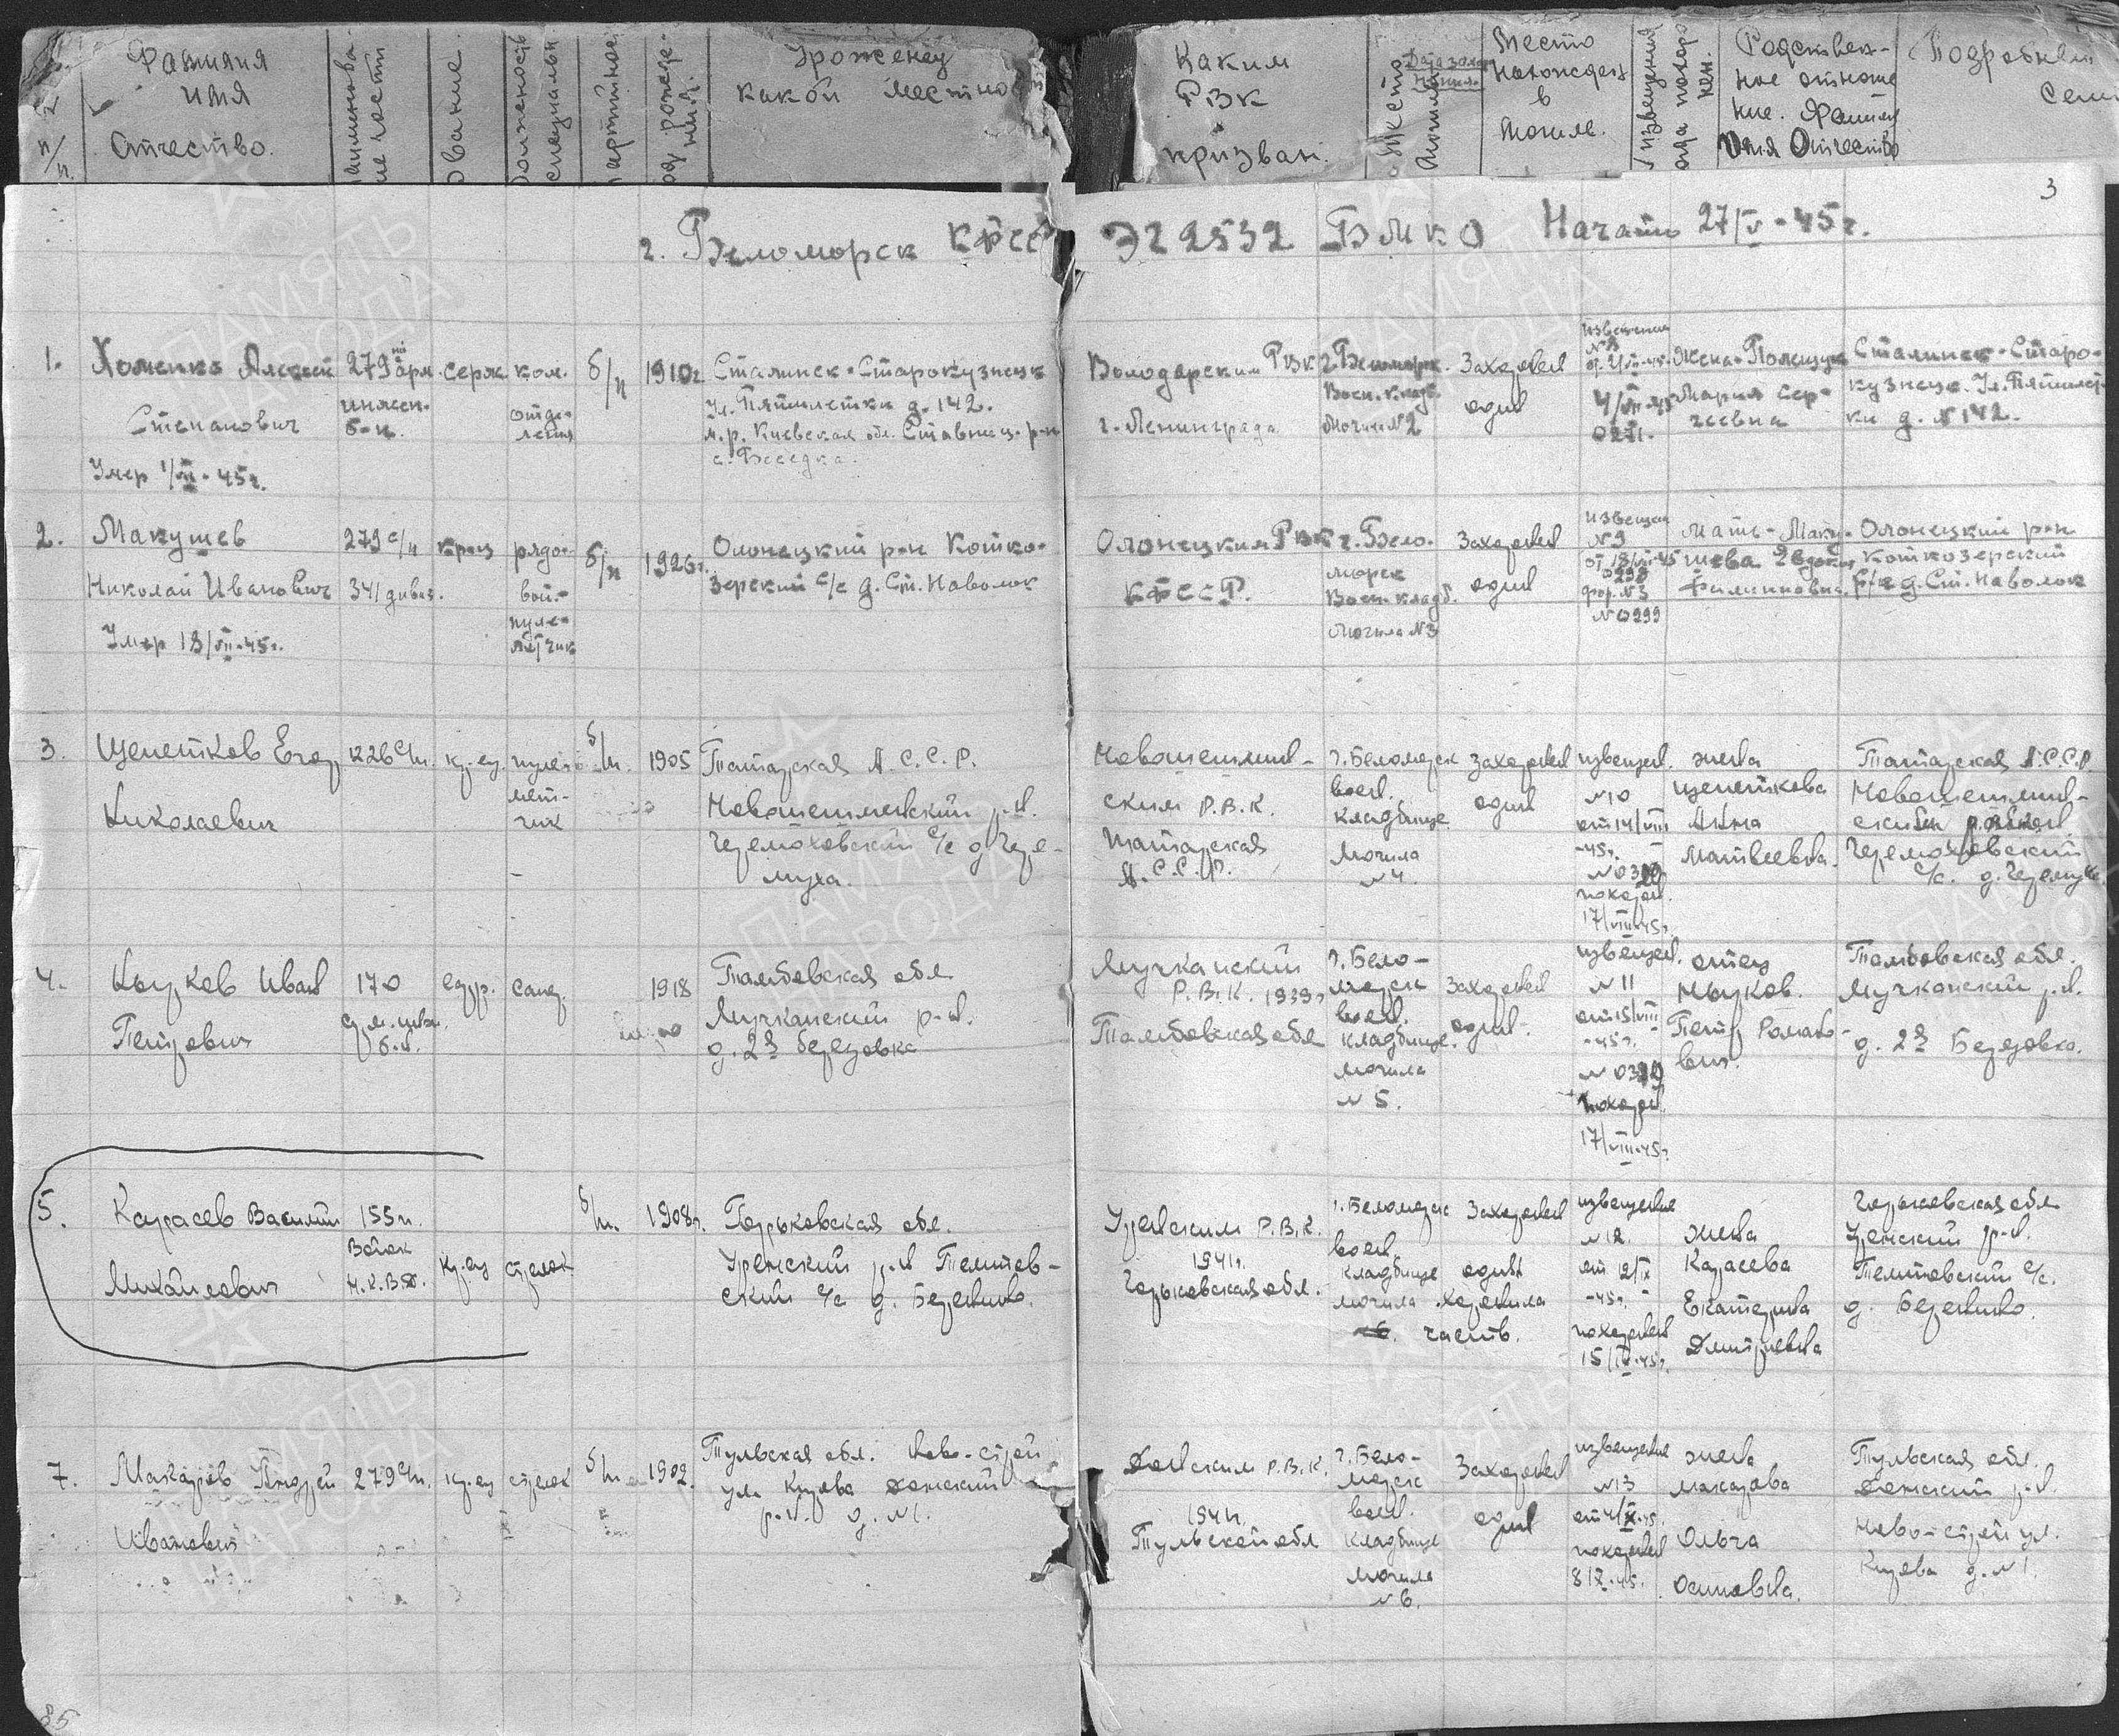 Фамилия
имя
Отчество.
п/п.
звание.
Уроженец
какой местнос
Каким
РВК
призван.
Место
нахожден
в
могиле.
Родствен-
ное отноше
ние. Фамил
Имя Отчество
Подробный
Семь
3
г. Беломорск КФСС
ЭГ 2532 БМКО Начато 27/V-45г.
1.
Хоменко Алексей
Степанович
Умер 1/VII-45г.
279й
арм
инжен.
б-н.
серж
ком.
отде-
ления
б/п
1910г
Сталинск-Старокузнецк
Ул. Пятилетки д. 142.
м.р. Киевская обл. Ставищ. р-н
с. Беседка.
Володарским РВК
г. Ленинграда
г. Беломорск.
Воен. кладб.
Могила №2
Захоронен
один
Извещение
№8
4/VII-45
0271.
Жена-Полищук
Мария Сер-
геевна
Сталинск-Старо-
кузнецк. Ул. Пятилет-
ки д. №142.
2.
Макушев
Николай Иванович
Умер 13/VII-45г.
279 с/п
341 дивиз.
кр-ц
рядо-
вой-
пуле-
мётчик
б/п
1926г.
Олонецкий р-н Котко-
зерский с/с д. Ст. Наволок
Олонецким РВК
КФССР.
г. Бело-
морск
Воен. кладб.
Могила №3
Захоронен
один
Извещен
№9
от 13/VII-45
0298
фор. №3
№0299
Мать-Маку-
шева Евдокия
Филипповна.
Олонецкий р-н
Коткозерский
с/с д. Ст. Наволок
3.
Щепетков Егор
Николаевич
1226 с/п.
кр-ец.
пуле-
мёт-
чик
б/п.
1905
Татарская А.С.С.Р.
Новошешминский р-н.
Черемоховский с/с д. Чере-
муха.
Новошешмин-
ским Р.В.К.
Татарская
А.С.С.Р.
г. Беломорск
воен.
кладбище
могила
№4.
Захоронен
один
извещен.
№10
от 14/VIII
-45г.
похорон.
17/VIII-45г.
жена
Щепеткова
Анна
Матвеевна.
Татарская А.С.С.Р.
Новошешмин-
Черемоховский
с/с. д. Черемуха
4.
Цырков Иван
Петрович
170
б-н.
ефр.
сапер.
1918
Тамбовская обл
Мучкапский р-н.
д. 2я березовка
Мучкапский
Р.В.К. 1939г
Тамбовская обл
г. Бело-
морск
воен.
кладбище.
могила
№5.
Захоронен
один.
извещен.
№11
от 15/VIII
-45г.
похорон.
17/VIII-45г.
отец
Цырков.
Петр Романо-
вич.
Тамбовская обл.
Мучкапский р-н.
д. 2я Березовка.
5.
Карасев Василий
Михайлович
155 п.
Войск
Н.К.В.Д.
кр-ец
стрелок
б/п.
1908г.
Горьковская обл.
Уренский р-н Темтов-
ский с/с д. Березино.
Уренским Р.В.К.
1941г.
Горьковская обл.
г. Беломорск
воен.
кладбище
могила
Захоронен
один
хоронила
часть.
извещение
№12.
от 12/IX
-45г.
похоронен
15/IX-45г.
жена
Карасева
Екатерина
Дмитриевна
Горьковская обл
Уренский р-н.
Темтовский с/с.
д. Березино.
7.
Макаров Андрей
Иванович
279 с/п.
кр-ец
стрелок
б/п
1902.
Тульская обл. Ново-строй
ул. Кирова Донской
р-н. д. №1.
Донским Р.В.К.
1941г.
Тульской обл
г. Бело-
морск
воен.
кладбище
могила
№6.
Захоронен
один
извещение
№13
от 4/X-45.
похоронен
8/X-45.
жена
Макарова
Ольга
Осиповна.
Тульская обл.
Донской р-н.
Ново-строй ул.
Кирова д. №1.
85